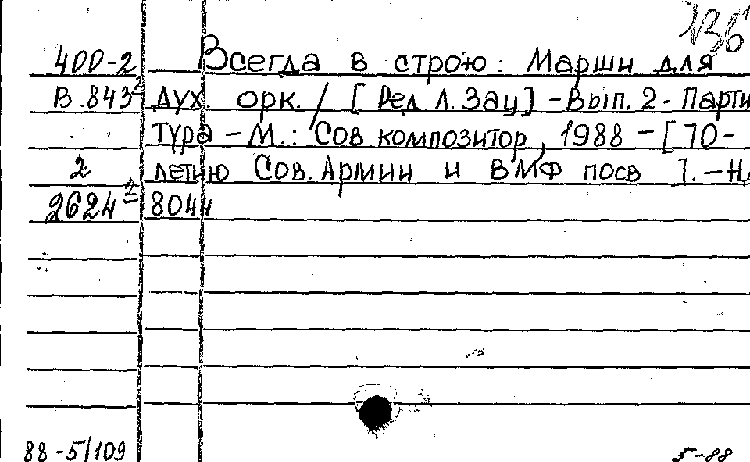 400-2 Всегда в строю: Марши для
В.843 дух. орк. / [Ред Л. Зац] - Вып. 2 - Парти
тура - М.: Сов композитор, 1988 - [70-
2 летию Сов. Армии и ВМФ посв ]. - Н.
2624 8044
88-5/109 5-88